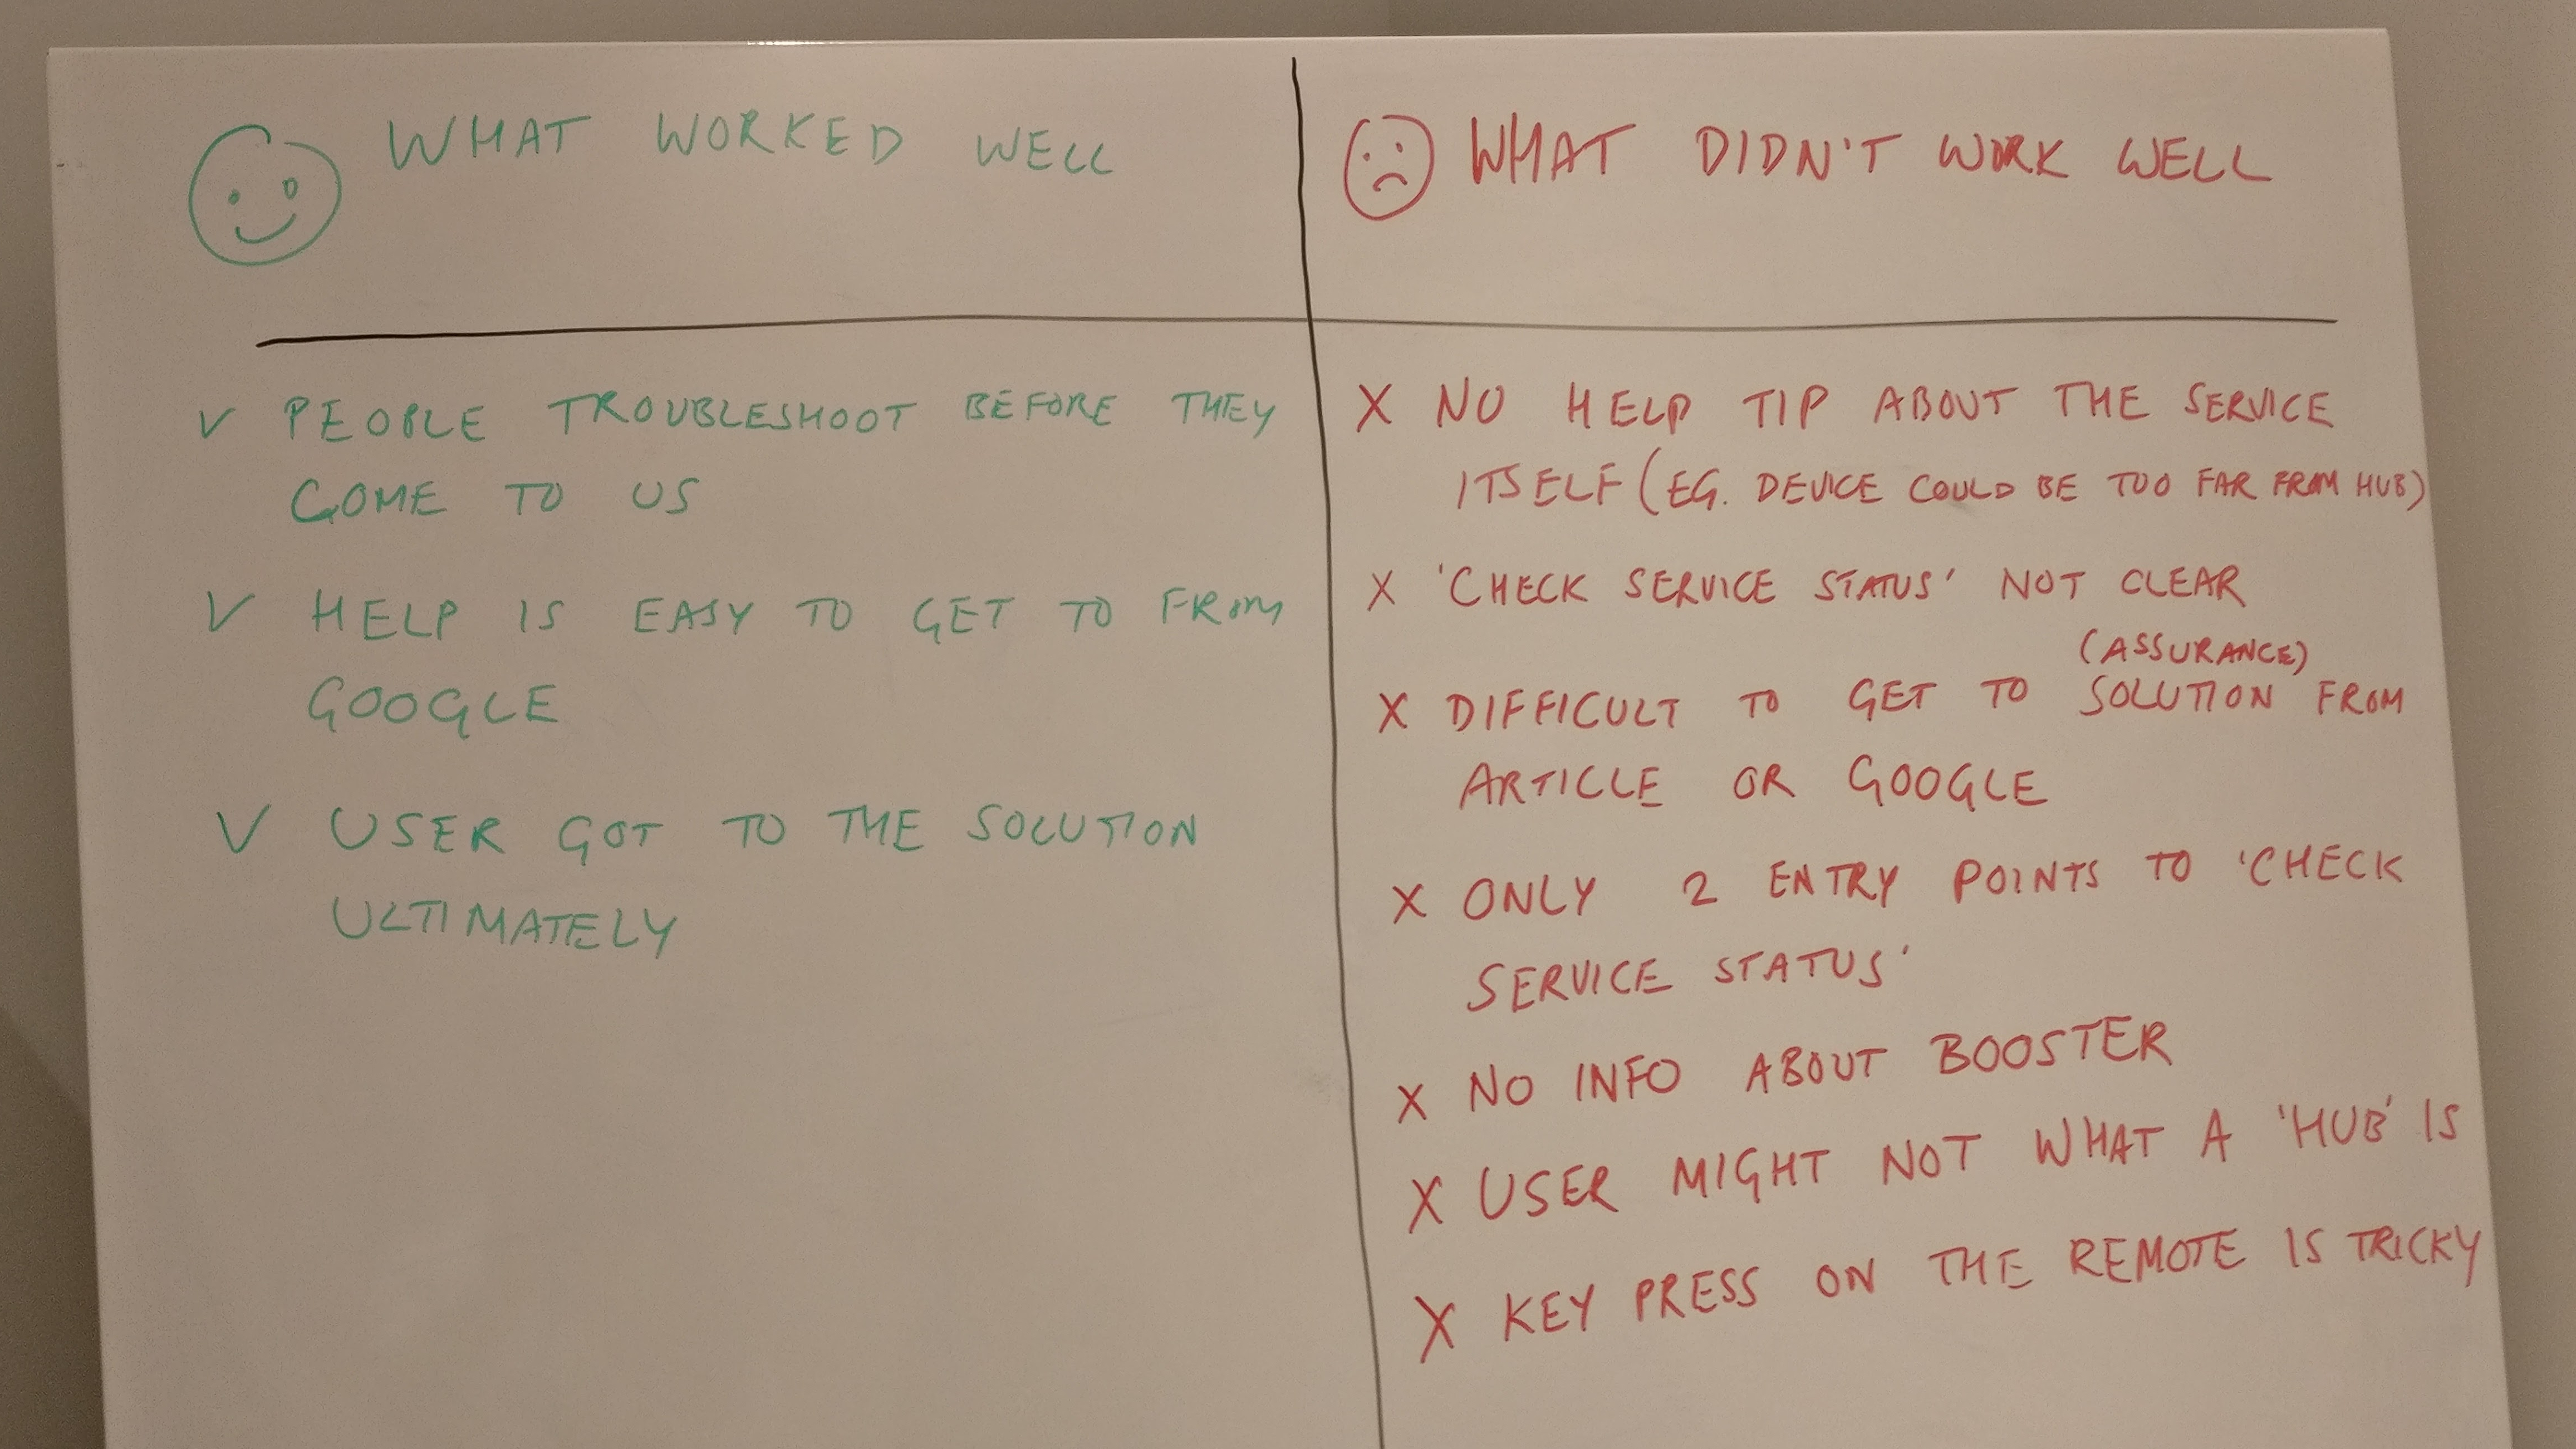 WHAT WORKED WELL
✓ PEOPLE TROUBLESHOOT BEFORE THEY
COME TO US
✓ HELP IS EASY TO GET TO FROM
GOOGLE
✓ USER GOT TO THE SOLUTION
ULTIMATELY
WHAT DIDN'T WORK WELL
X NO HELP TIP ABOUT THE SERVICE
ITSELF (EG. DEVICE COULD BE TOO FAR FROM HUB)
X 'CHECK SERVICE STATUS' NOT CLEAR
(ASSURANCE)
X DIFFICULT TO GET TO SOLUTION FROM
ARTICLE OR GOOGLE
X ONLY 2 ENTRY POINTS TO 'CHECK
SERVICE STATUS'
X NO INFO ABOUT BOOSTER
X USER MIGHT NOT WHAT A 'HUB' IS
X KEY PRESS ON THE REMOTE IS TRICKY